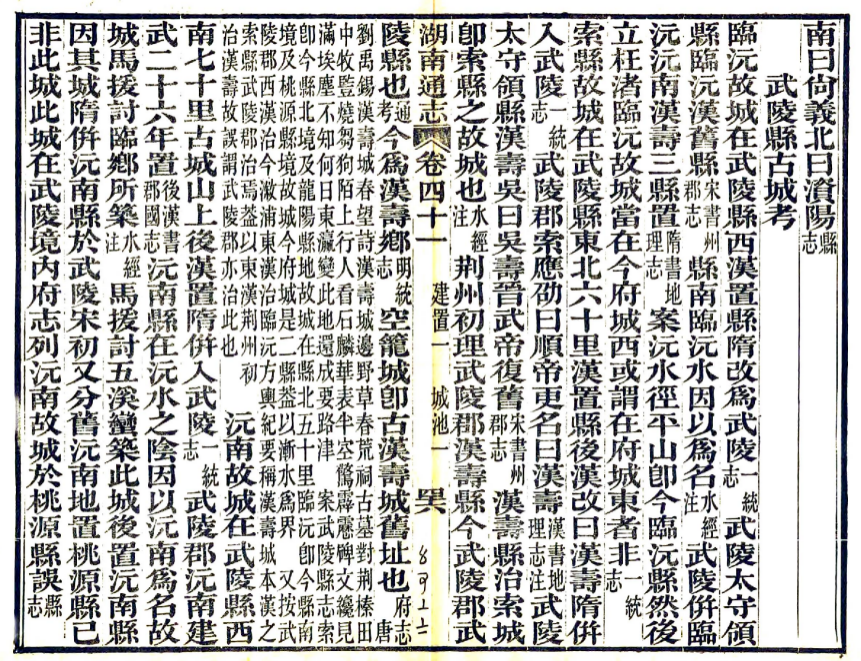 南曰尙義北曰陽縣志
武陵縣古城考
臨沅故城在武陵縣西漢置縣隋改爲武陵一統志武陵太守領
縣臨沅漢舊縣宋書州郡志縣南臨沅水因以爲名水經注武陵併臨
沅沅南漢壽三縣置隋書地理志案沅水徑平山卽今臨沅縣然後
立枉渚臨沅故城當在今府城西或謂在府城東者非一統志
索縣故城在武陵縣東北六十里漢置縣後漢改曰漢壽隋併
入武陵一統志武陵郡索應劭曰順帝更名曰漢壽漢書地理志注武陵
太守領縣漢壽吳曰吳壽晉武帝復舊宋書州郡志漢壽縣治索城
卽索縣之故城也水經注荆州初理武陵郡漢壽縣今武陵郡武
湖南通志 卷四十一 建置一 城池一 罢六
陵縣也通考今爲漢壽鄉明統志空籠城卽古漢壽城舊址也府志唐
劉禹錫漢壽城春望詩漢壽城邊野草春荒祠古墓對荆榛田
中牧豎燒芻狗陌上行人看石麟華表半空驚霹靂碑文纔見
滿埃塵不知何日東瀛變此地還成要路津 案武陵縣志索
卽今縣北境及龍陽縣地故城在縣北五十里臨沅卽今縣南
境及桃源縣境故城今府城是二縣葢以漸水爲界 又按武
陵郡西漢治今漵浦東漢治臨沅方輿紀要稱漢壽城本漢之
索縣武陵郡治焉葢以東漢荆州初
治漢壽故誤謂武陵郡亦治此也
沅南故城在武陵縣西
南七十里古城山上後漢置隋併入武陵一統志武陵郡沅南建
武二十六年置後漢書郡國志沅南縣在沅水之陰因以沅南爲名故
城馬援討臨鄉所築水經注馬援討五溪蠻築此城後置沅南縣
因其城隋併沅南縣於武陵宋初又分舊沅南地置桃源縣已
非此城此城在武陵境內府志列沅南故城於桃源縣誤縣志